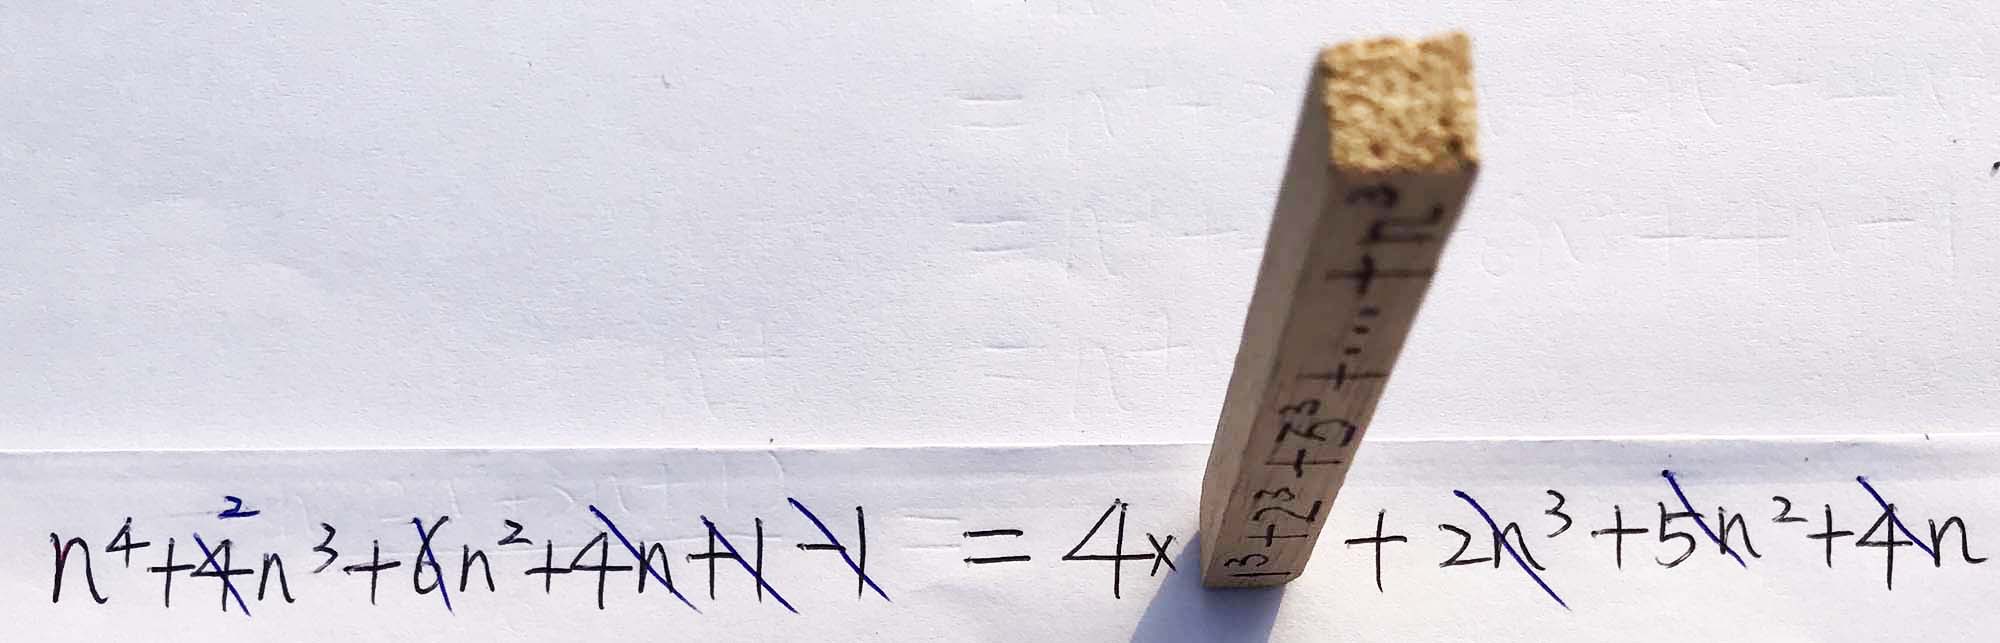 n⁴+4n³+6n²+4n+1-1 = 4x 1³+2³+3³+....+n³ + 2n³+5n²+4n
2